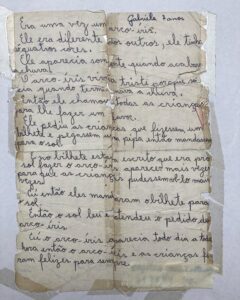 Gabriela 7 anos
Era uma vez um arco-íris.
Ele era diferente dos outros, ele tinha
quatro cores.
Ele aparecia somente quando acabava
chuva.
O arco-íris vivia triste porque só
cia quando terminava a chuva.
Então ele chamou todas as crianças
para lhe fazer um
Ele pediu as crianças que fizessem um
bilhete e pegassem uma pipa então mandassem
para o sol.
E no bilhete estava escrito que era pro
sol fazer o arco-íris aparecer mais vezes
para que as crianças pudessem vê-lo mais
vezes.
Eu então eles mandaram o bilhete para
o sol.
Então o sol leu e atendeu o pedido do
arco-íris.
Eu o arco-íris aparecia todo dia a toda
hora então o arco-íris e as crianças fo
ram felizes para sempre.